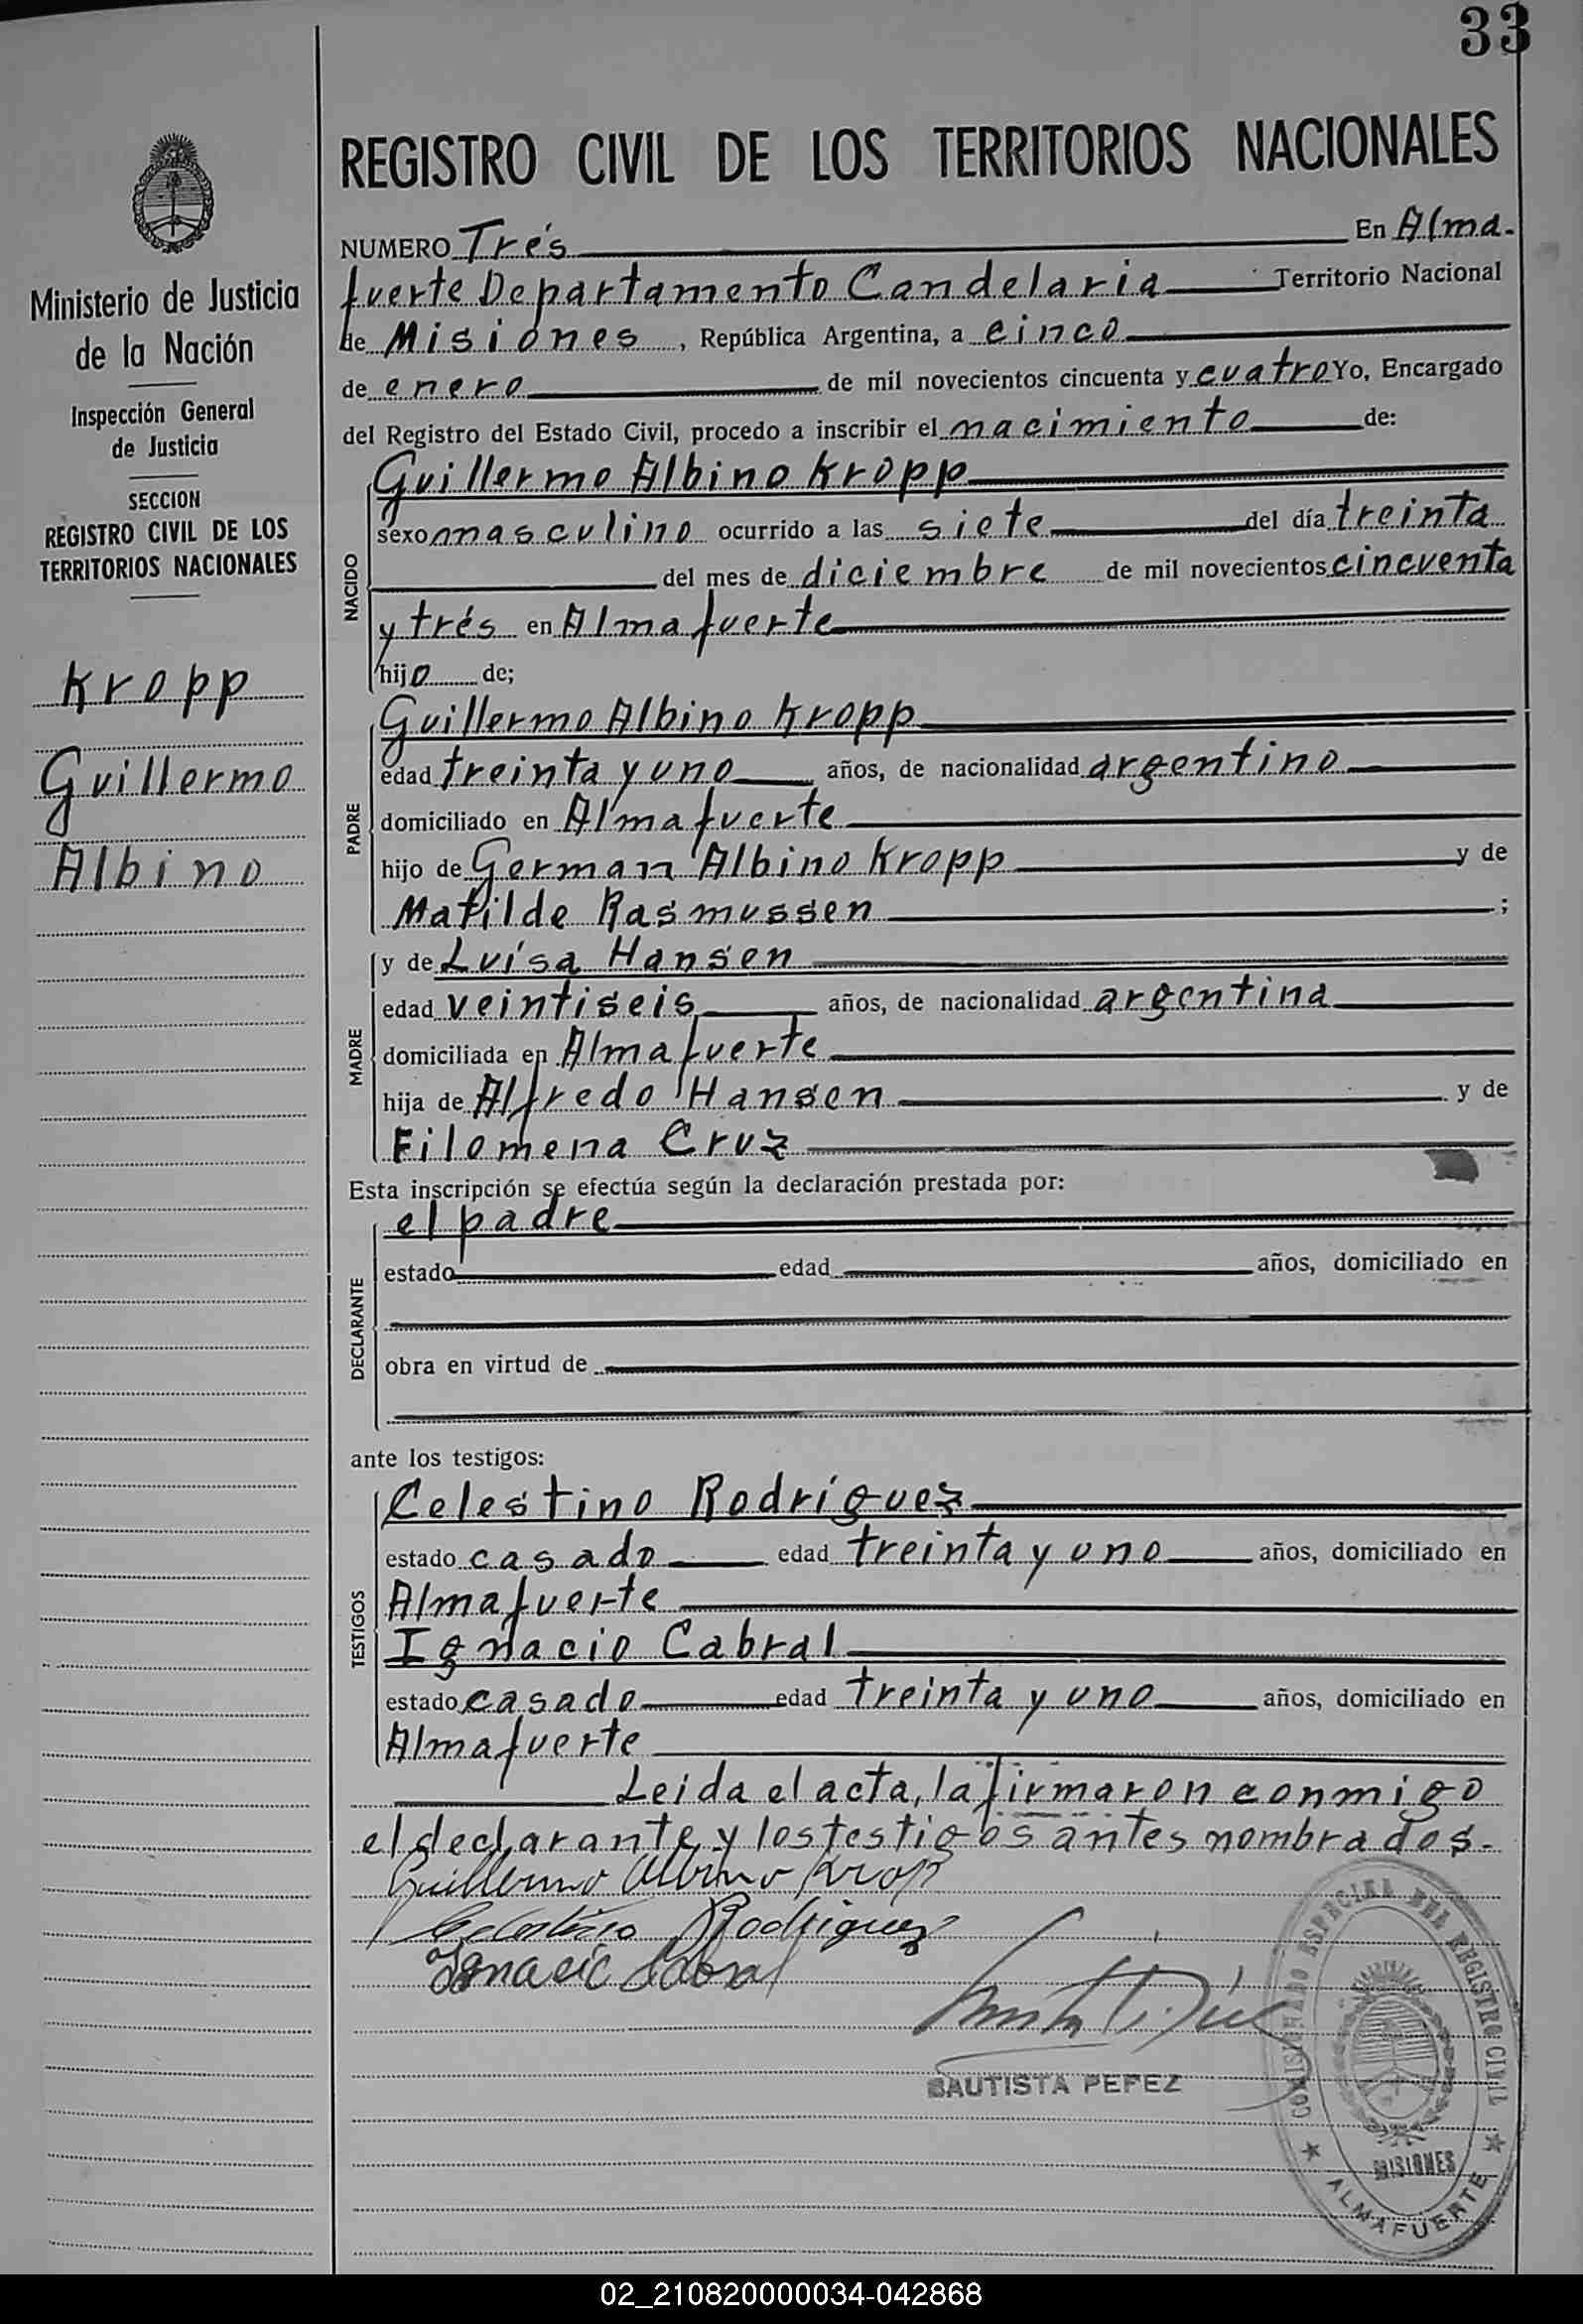 33
REGISTRO CIVIL DE LOS TERRITORIOS NACIONALES
Ministerio de Justicia
de la Nación
Inspección General
de Justicia
SECCION
REGISTRO CIVIL DE LOS
TERRITORIOS NACIONALES
Kropp
Guillermo
Albino
NUMERO Trés En Alma-
fuerte Departamento Candelaria Territorio Nacional
de Misiones, República Argentina, a cinco
de enero de mil novecientos cincuenta y cuatro Yo, Encargado
del Registro del Estado Civil, procedo a inscribir el nacimiento de:
NACIDO
Guillermo Albino Kropp
sexo masculino ocurrido a las siete del día treinta
del mes de diciembre de mil novecientos cincuenta
y trés en Almafuerte
hijo de;
PADRE
Guillermo Albino Kropp
edad treinta y uno años, de nacionalidad argentino
domiciliado en Almafuerte
hijo de German Albino Kropp y de
Matilde Rasmussen ;
MADRE
y de Luísa Hansen
edad veintiseis años, de nacionalidad argentina
domiciliada en Almafuerte
hija de Alfredo Hansen y de
Filomena Cruz
Esta inscripción se efectúa según la declaración prestada por:
DECLARANTE
el padre
estado edad años, domiciliado en
obra en virtud de
ante los testigos:
TESTIGOS
Celestino Rodríguez
estado casado edad treinta y uno años, domiciliado en
Almafuerte
Ignacio Cabral
estado casado edad treinta y uno años, domiciliado en
Almafuerte
Leida el acta, la firmaron conmigo
el declarante y los testigos antes nombrados.
Guillermo Albino Kropp
Celestino Rodriguez
Ignacio Cabral
BAUTISTA PEREZ
COMISIONADO ESPECIAL DEL REGISTRO CIVIL
MISIONES
★ ALMAFUERTE ★
02_210820000034-042868